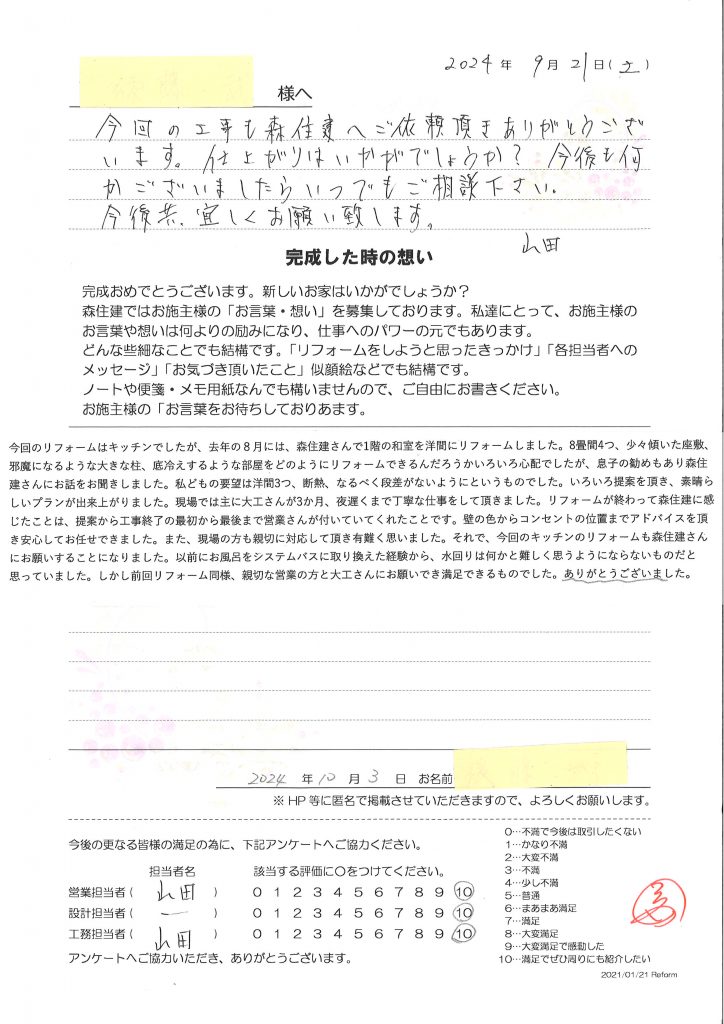 2024年 9月 21日(土)
様へ
今回の工事も森住建へご依頼頂きありがとうござ
います。仕上がりはいかがでしょうか? 今後も何
かございましたらいつでもご相談下さい。
今後共、宜しくお願い致します。
山田
完成した時の想い
完成おめでとうございます。新しいお家はいかがでしょうか?
森住建ではお施主様の「お言葉・想い」を募集しております。私達にとって、お施主様の
お言葉や想いは何よりの励みになり、仕事へのパワーの元でもあります。
どんな些細なことでも結構です。「リフォームをしようと思ったきっかけ」「各担当者への
メッセージ」「お気づき頂いたこと」似顔絵などでも結構です。
ノートや便箋・メモ用紙なんでも構いませんので、ご自由にお書きください。
お施主様の「お言葉をお待ちしておりあます。
今回のリフォームはキッチンでしたが、去年の8月には、森住建さんで1階の和室を洋間にリフォームしました。8畳間4つ、少々傾いた座敷、
邪魔になるような大きな柱、底冷えするような部屋をどのようにリフォームできるんだろうかいろいろ心配でしたが、息子の勧めもあり森住
建さんにお話をお聞きしました。私どもの要望は洋間3つ、断熱、なるべく段差がないようにというものでした。いろいろ提案を頂き、素晴ら
しいプランが出来上がりました。現場では主に大工さんが3か月、夜遅くまで丁寧な仕事をして頂きました。リフォームが終わって森住建に感
じたことは、提案から工事終了の最初から最後まで営業さんが付いていてくれたことです。壁の色からコンセントの位置までアドバイスを頂
き安心してお任せできました。また、現場の方も親切に対応して頂き有難く思いました。それで、今回のキッチンのリフォームも森住建さん
にお願いすることになりました。以前にお風呂をシステムバスに取り換えた経験から、水回りは何かと難しく思うようにならないものだと
思っていました。しかし前回リフォーム同様、親切な営業の方と大工さんにお願いでき満足できるものでした。ありがとうございました。
2024 年 10 月 3 日 お名前
※HP等に匿名で掲載させていただきますので、よろしくお願いします。
今後の更なる皆様の満足の為に、下記アンケートへご協力ください。
担当者名 該当する評価に〇をつけてください。
営業担当者( 山田 ) 0 1 2 3 4 5 6 7 8 9 10
設計担当者( ― ) 0 1 2 3 4 5 6 7 8 9 10
工務担当者( 山田 ) 0 1 2 3 4 5 6 7 8 9 10
アンケートへご協力いただき、ありがとうございます。
0…不満で今後は取引したくない
1…かなり不満
2…大変不満
3…不満
4…少し不満
5…普通
6…まあまあ満足
7…満足
8…大変満足
9…大変満足で感動した
10…満足でぜひ周りにも紹介したい
2021/01/21 Reform